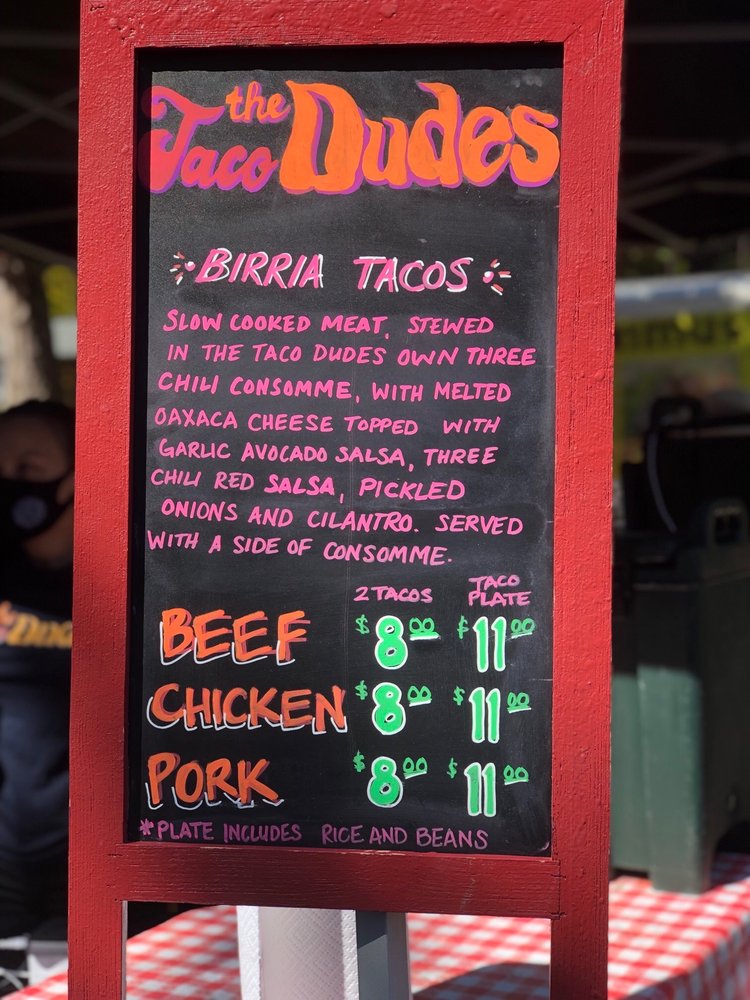 the
Taco Dudes
BIRRIA TACOS
SLOW COOKED MEAT, STEWED
IN THE TACO DUDES OWN THREE
CHILI CONSOMME, WITH MELTED
OAXACA CHEESE TOPPED WITH
GARLIC AVOCADO SALSA, THREE
CHILI RED SALSA, PICKLED
ONIONS AND CILANTRO. SERVED
WITH A SIDE OF CONSOMME.
2 TACOS TACO PLATE
BEEF $8.00 $11.00
CHICKEN $8.00 $11.00
PORK $8.00 $11.00
*PLATE INCLUDES RICE AND BEANS